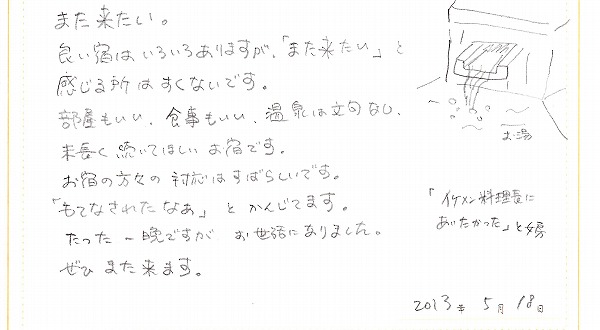 また来たい。
良い宿はいろいろありますが、「また来たい」と
感じる所はすくないです。
部屋もいい、食事もいい、温泉は文句なし、
末長く続いてほしいお宿です。
お宿の方々の対応はすばらしいです。
「もてなされたなあ」とかんじてます。
たった一晩ですがお世話になりました。
ぜひまた来ます。
お湯
「イケメン料理長に
あいたかった」と妻
2013年5月18日